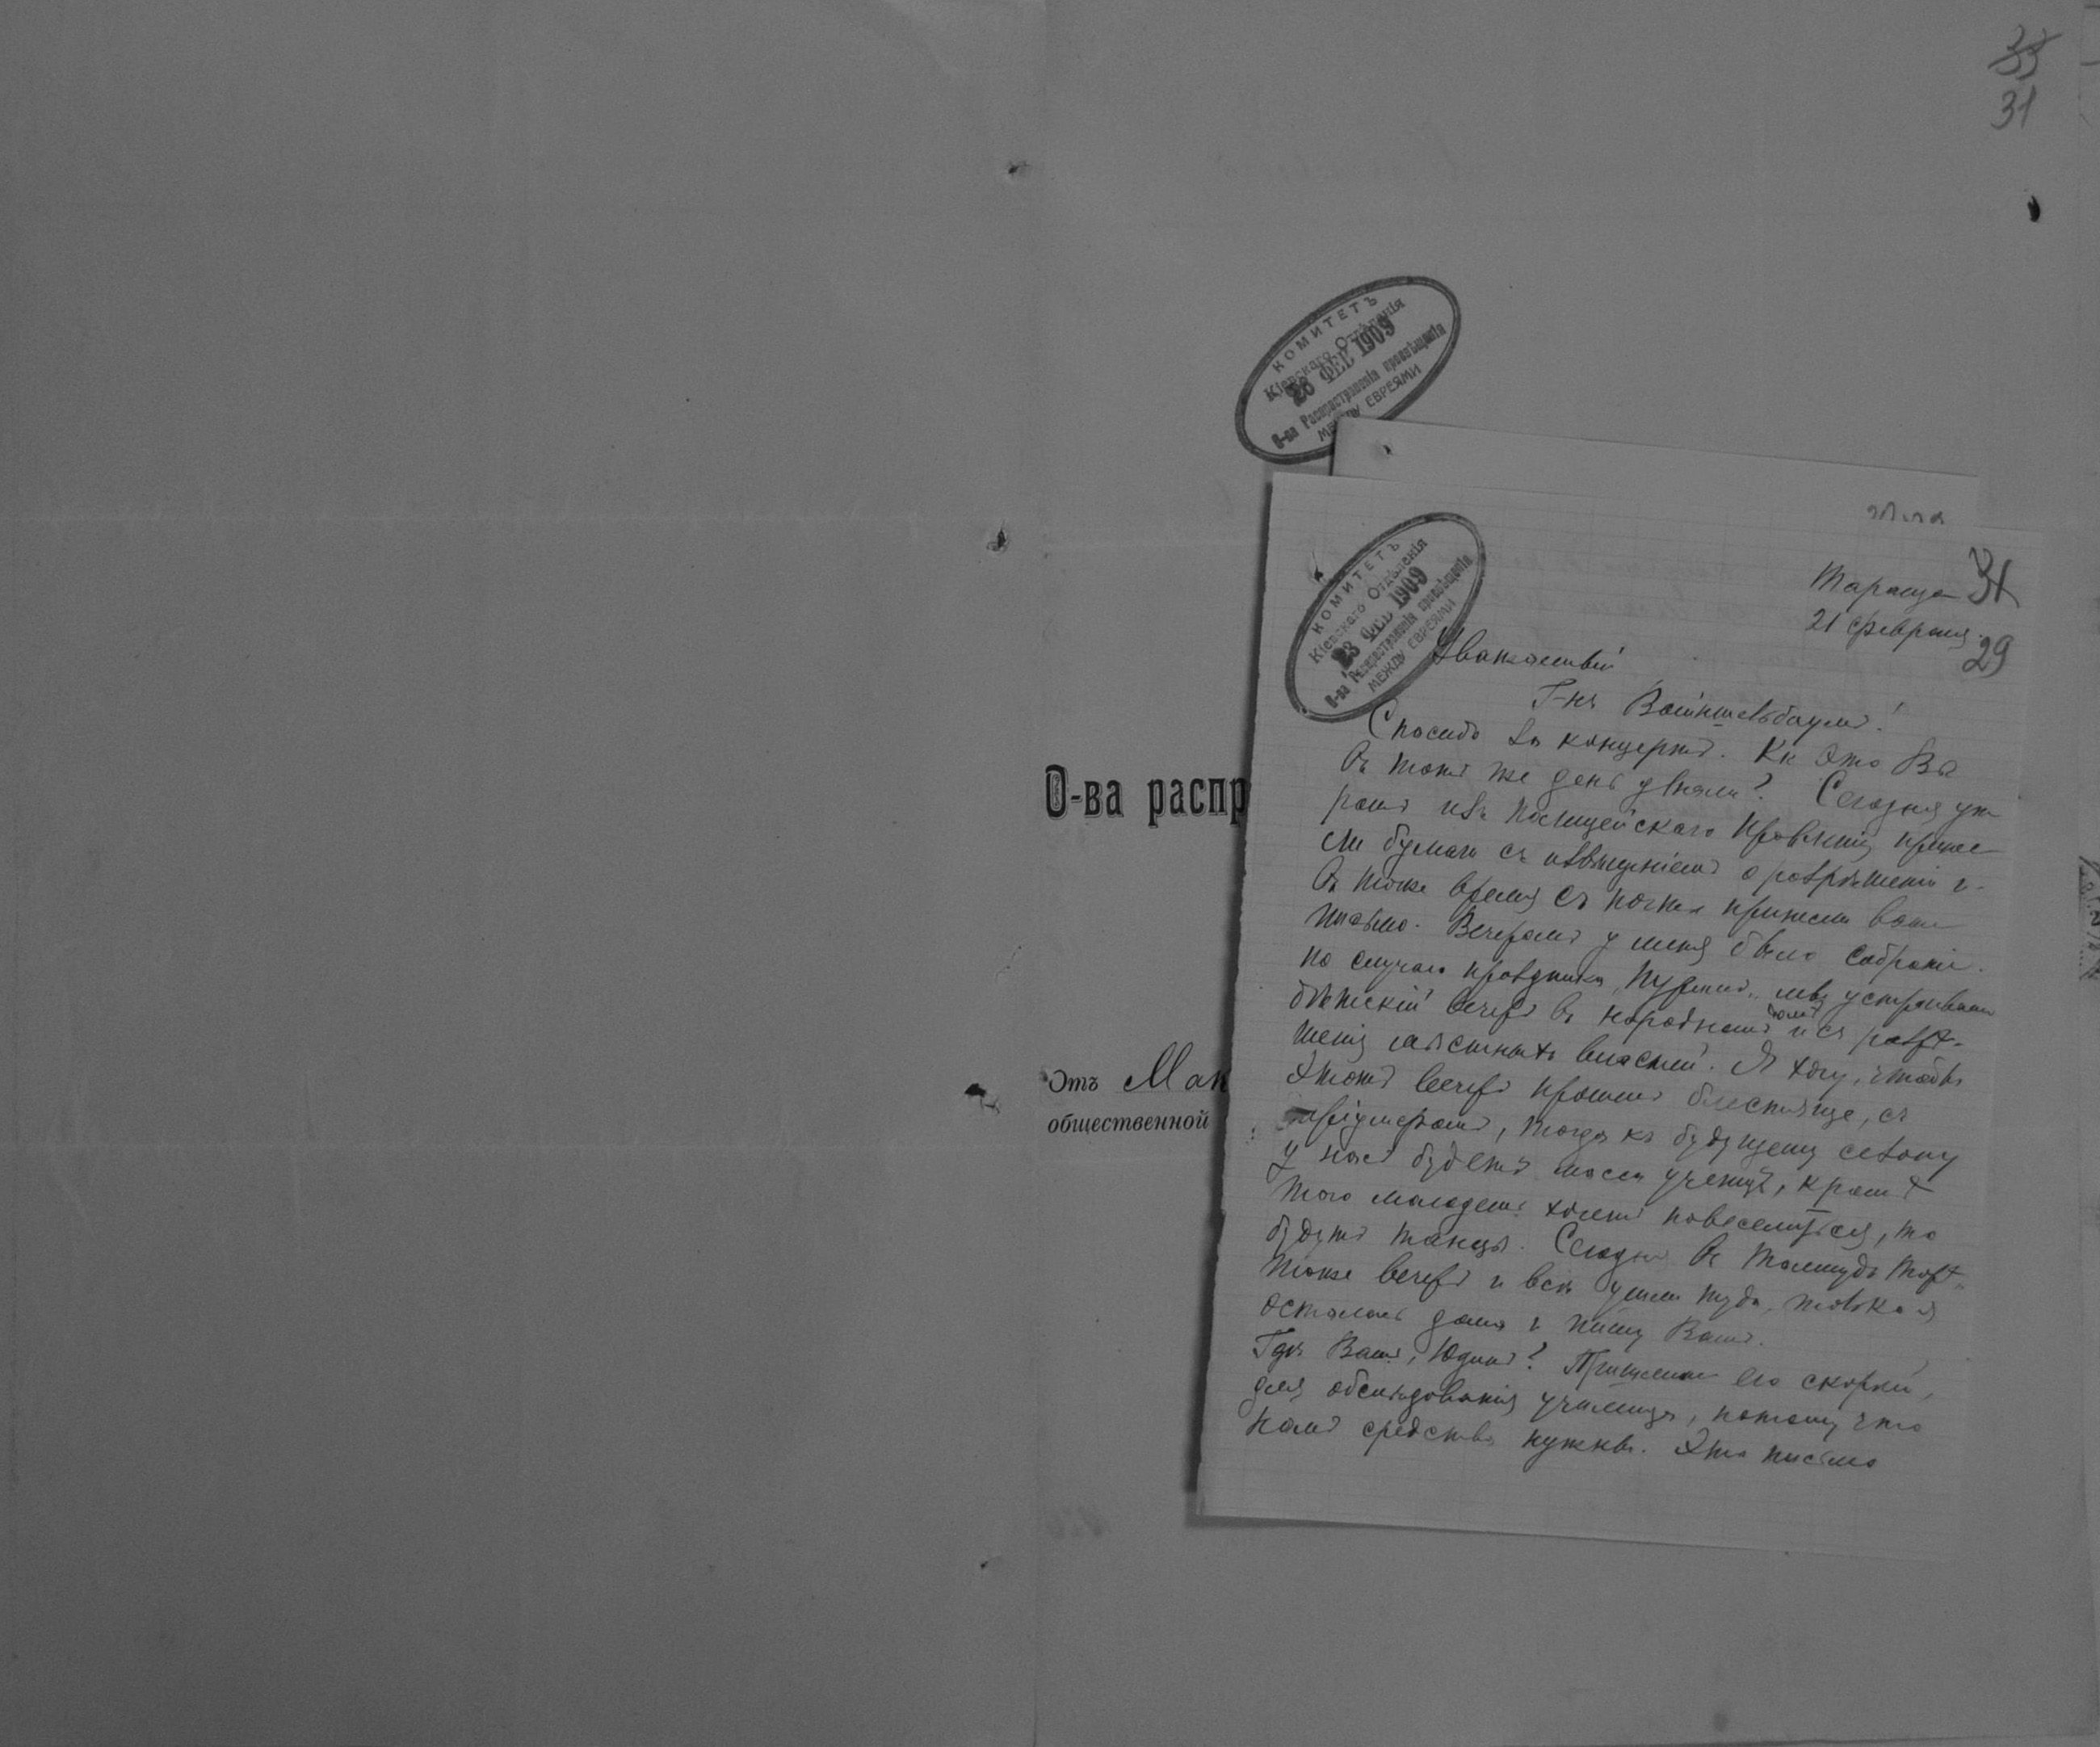 33
31
КОМИТЕТЪ
Кіевскаго Отдѣленія
23 ФЕВ 1909
О-ва Распространенія просвѣщенія
МЕЖДУ ЕВРЕЯМИ
О-ва распр
Отъ Мак
общественной
КОМИТЕТЪ
Кіевскаго Отдѣленія
23 ФЕВ 1909
О-ва Распространенія просвѣщенія
МЕЖДУ ЕВРЕЯМИ
Тараща 31
21 февраля
29
Уважаемый
Г-нъ Вайнштельбаумъ!
Спасибо за концертъ. Кк это Вы
въ тотъ же день узнали? Сегодня ут
ромъ изъ Полицейскаго Правленія принес
ли бумагу съ извѣщеніемъ о разрѣшеніи и
въ тоже время съ почты принесли ваше
письмо. Вечеромъ у меня было собраніе
по случаю праздника „Пуримъ„ мы устраиваем
дѣтскій вечеръ въ народномъ домѣ и съ разрѣ-
шенія мѣстныхъ властей. Я хочу, чтобы
этотъ вечеръ прошелъ блестяще, съ
тріумфомъ, тогда къ будущему сезону
у насъ будетъ масса ученицъ, кромѣ
того молодежь хочетъ повеселиться, то
будутъ танцы. Сегодня въ Талмудъ Торѣ
тоже вечеръ и всѣ ушли туда, только я
осталась дома и пишу Вамъ.
Гдѣ Вашъ, Юдинъ? Пришлите его скорѣй,
для обслѣдованія училища, потому что
намъ средства нужны. Это письмо